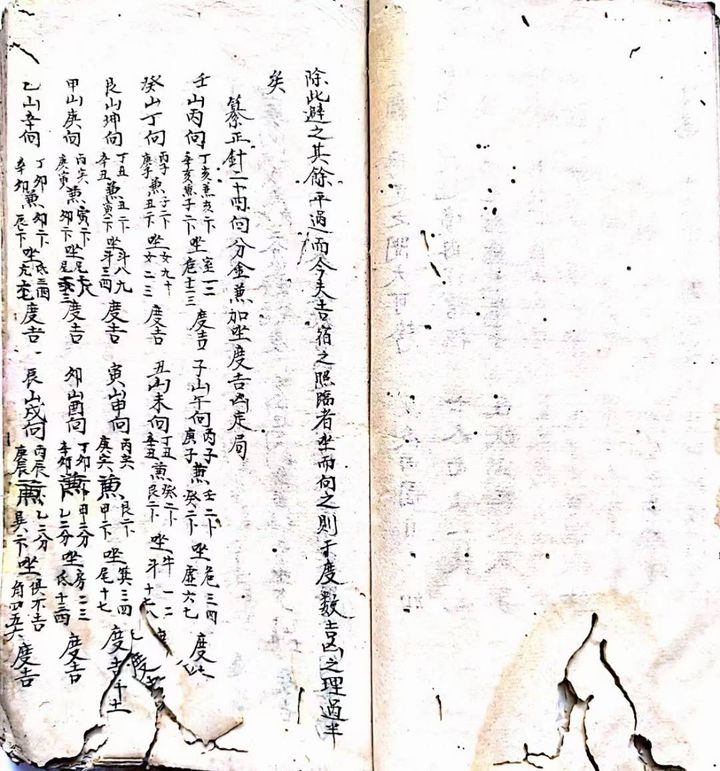 除此避之其餘平過而今夫吉宿之照臨者坐而向之則于度數吉凶之理過半
矣
纂正針二十四向分金兼加坐度吉凶定局
壬山丙向 丁亥兼亥二卜 辛亥兼子二卜 坐 室一二 危十二三 度吉 子山午向 丙子 庚子 兼 壬二卜 癸二卜 坐 危三四 虛六七 度
癸山丁向 丙子 庚子 兼 子二卜 丑二卜 坐 女九十 女二三 度吉 丑山未向 丁丑 辛丑 兼 癸二卜 艮二卜 坐 牛一二 斗十
艮山坤向 丁丑 辛丑 兼 丑二卜 寅二卜 坐 斗八九 斗三四 度吉 寅山申向 丙寅 庚寅 兼 艮二卜 甲二卜 坐 箕三四 尾十七 度吉
甲山庚向 丙寅 庚寅 兼 寅二卜 卯二卜 坐 尾 度吉 卯山酉向 丁卯 辛卯 兼 甲二分 乙二分 坐 房二三 氐十三四 度吉
乙山辛向 丁卯 辛卯 兼 卯二卜 辰二卜 坐 氐三四 亢 度吉 辰山戌向 丙辰 庚辰 兼 乙二分 巽二卜 坐 俱不吉 角四五 度吉